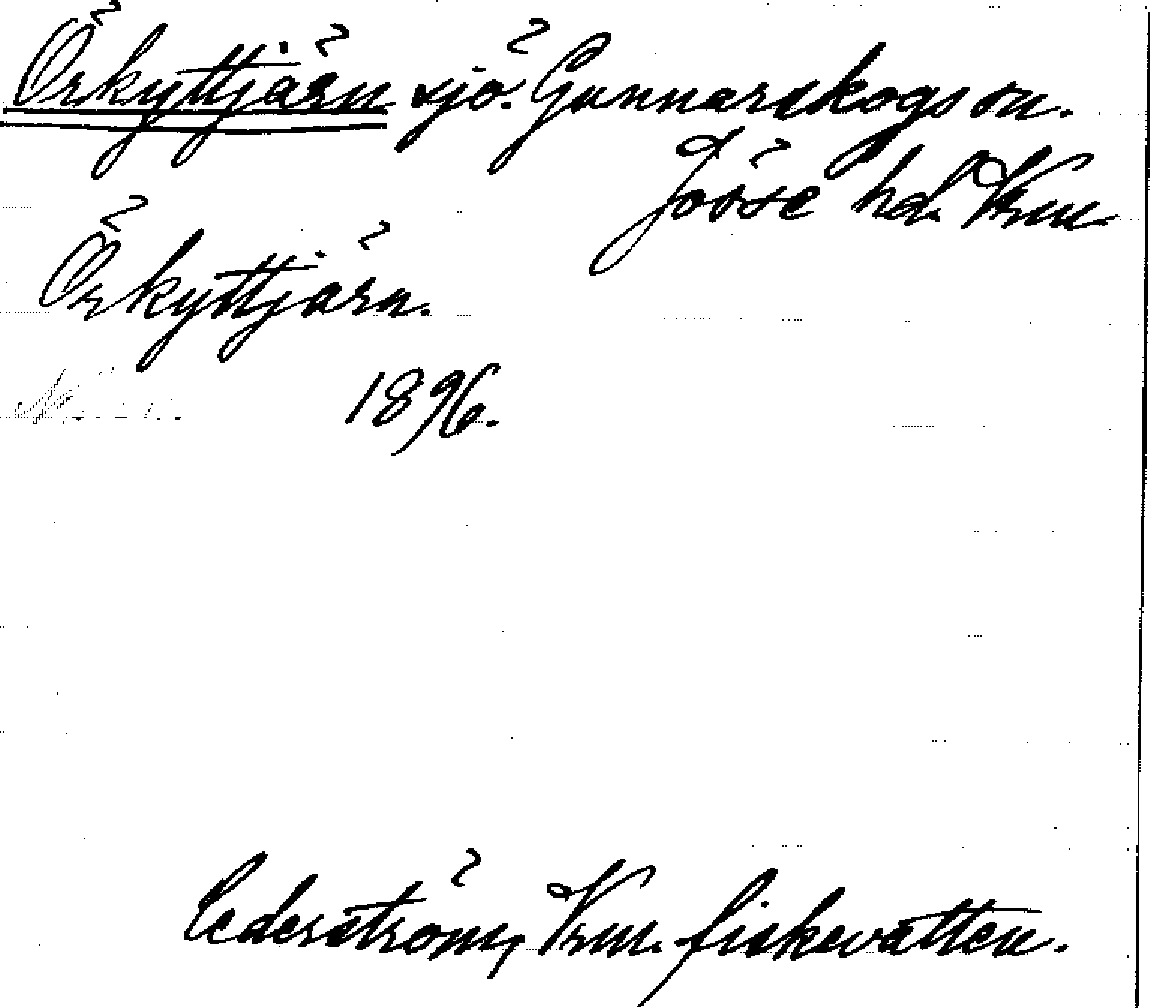 Örkyttjärn sjö. Gunnarskogs sn.
Jösse hd. Vrm
Örkyttjärn.
1896.
Cederström, Vrm. fiskevatten.